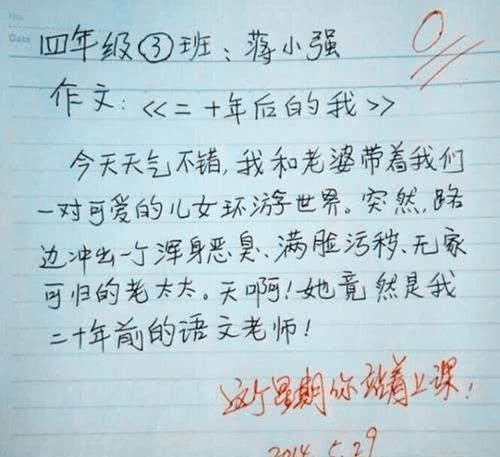 No:
Date
四年级③班：蒋小强
0
作文：《二十年后的我》
今天天气不错，我和老婆带着我们
一对可爱的儿女环游世界。突然，路
边冲出一个浑身恶臭、满脸污秽、无家
可归的老太太。天啊！她竟然是我
二十年前的语文老师！
这个星期你站着上课！
2014.5.29